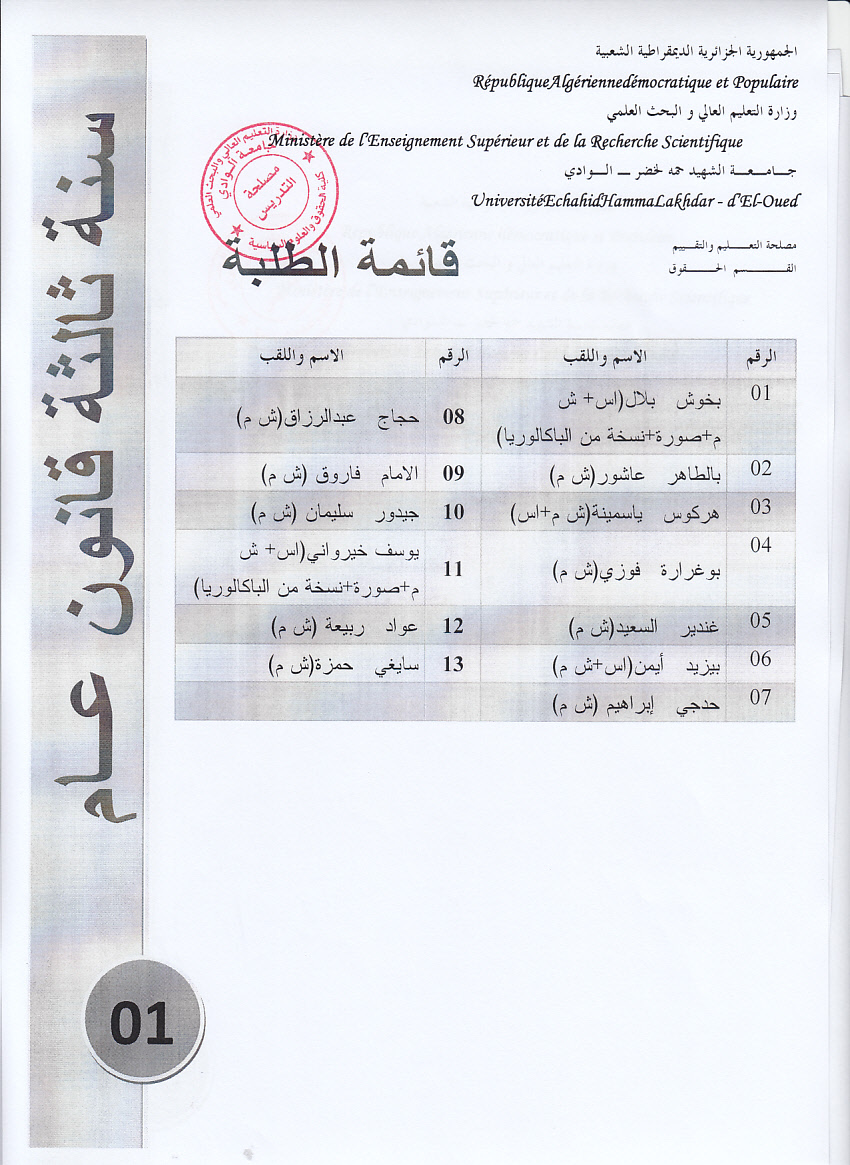 الجمهورية الجزائرية الديمقراطية الشعبية
RépubliqueAlgériennedémocratique et Populaire
وزارة التعليم العالي و البحث العلمي
Ministère de l'Enseignement Supérieur et de la Recherche Scientifique
جــامــعــة الشهيد حمه لخضر ـــ الــوادي
UniversitéEchahidHammaLakhdar - d'El-Oued
مصلحة التعـــليم والتقــييم
القـــــــسم الحـــــقوق
مصلحة
التدريس
جامعة الــوادي
قائمة الطلبة
سنة ثالثة قانون عـــام
الرقم الاسم واللقب الرقم الاسم واللقب
01 بخوش بلال(اس+ ش
م+صورة+نسخة من الباكالوريا)
08 حجاج عبدالرزاق(ش م)
02 بالطاهر عاشور(ش م) 09 الامام فاروق (ش م)
03 هركوس ياسمينة(ش م+اس) 10 جيدور سليمان (ش م)
04 بوغرارة فوزي(ش م)
11 يوسف خيرواني(اس+ ش
م+صورة+نسخة من الباكالوريا)
05 غندير السعيد(ش م) 12 عواد ربيعة (ش م)
06 بيزيد أيمن(اس+ش م) 13 سايغي حمزة(ش م)
07 حدجي إبراهيم (ش م)
01